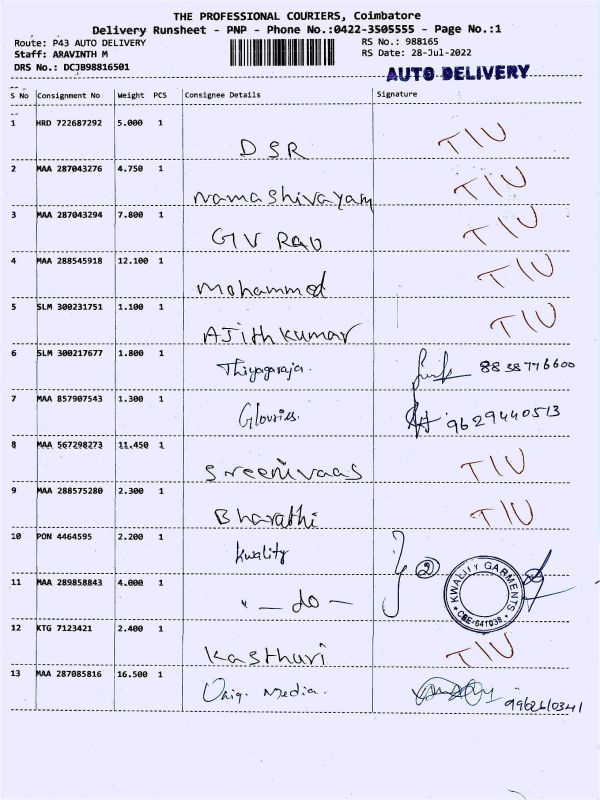 THE PROFESSIONAL COURIERS, Coimbatore
Delivery Runsheet - PNP - Phone No.:0422-3505555 - Page No.:1
Route: P43 AUTO DELIVERY RS No.: 988165
Staff: ARAVINTH M RS Date: 28-Jul-2022
DRS No.: DCJB98816501
AUTO DELIVERY
S No Consignment No Weight PCS Consignee Details Signature
1 HRD 722687292 5.000 1
DSR TIU
2 MAA 287043276 4.750 1
Namashivayam TIU
3 MAA 287043294 7.800 1
GV RAO TIU
4 MAA 288545918 12.100 1
Mohammed TIU
5 SLM 300231751 1.100 1
AJithkumar TIU
6 SLM 300217677 1.800 1
Thiyagaraja. 8838776600
7 MAA 857907543 1.300 1
Glouries. 9629440513
8 MAA 567298273 11.450 1
Sreenivaas TIU
9 MAA 288575280 2.300 1
Bharathi TIU
10 PON 4464595 2.200 1
Kwality 2
11 MAA 289858843 4.000 1
" — do — KWALITY GARMENTS * CBE-641038 *
12 KTG 7123421 2.400 1
Kasthuri TIU
13 MAA 287085816 16.500 1
Uniq. Media. 9962610341